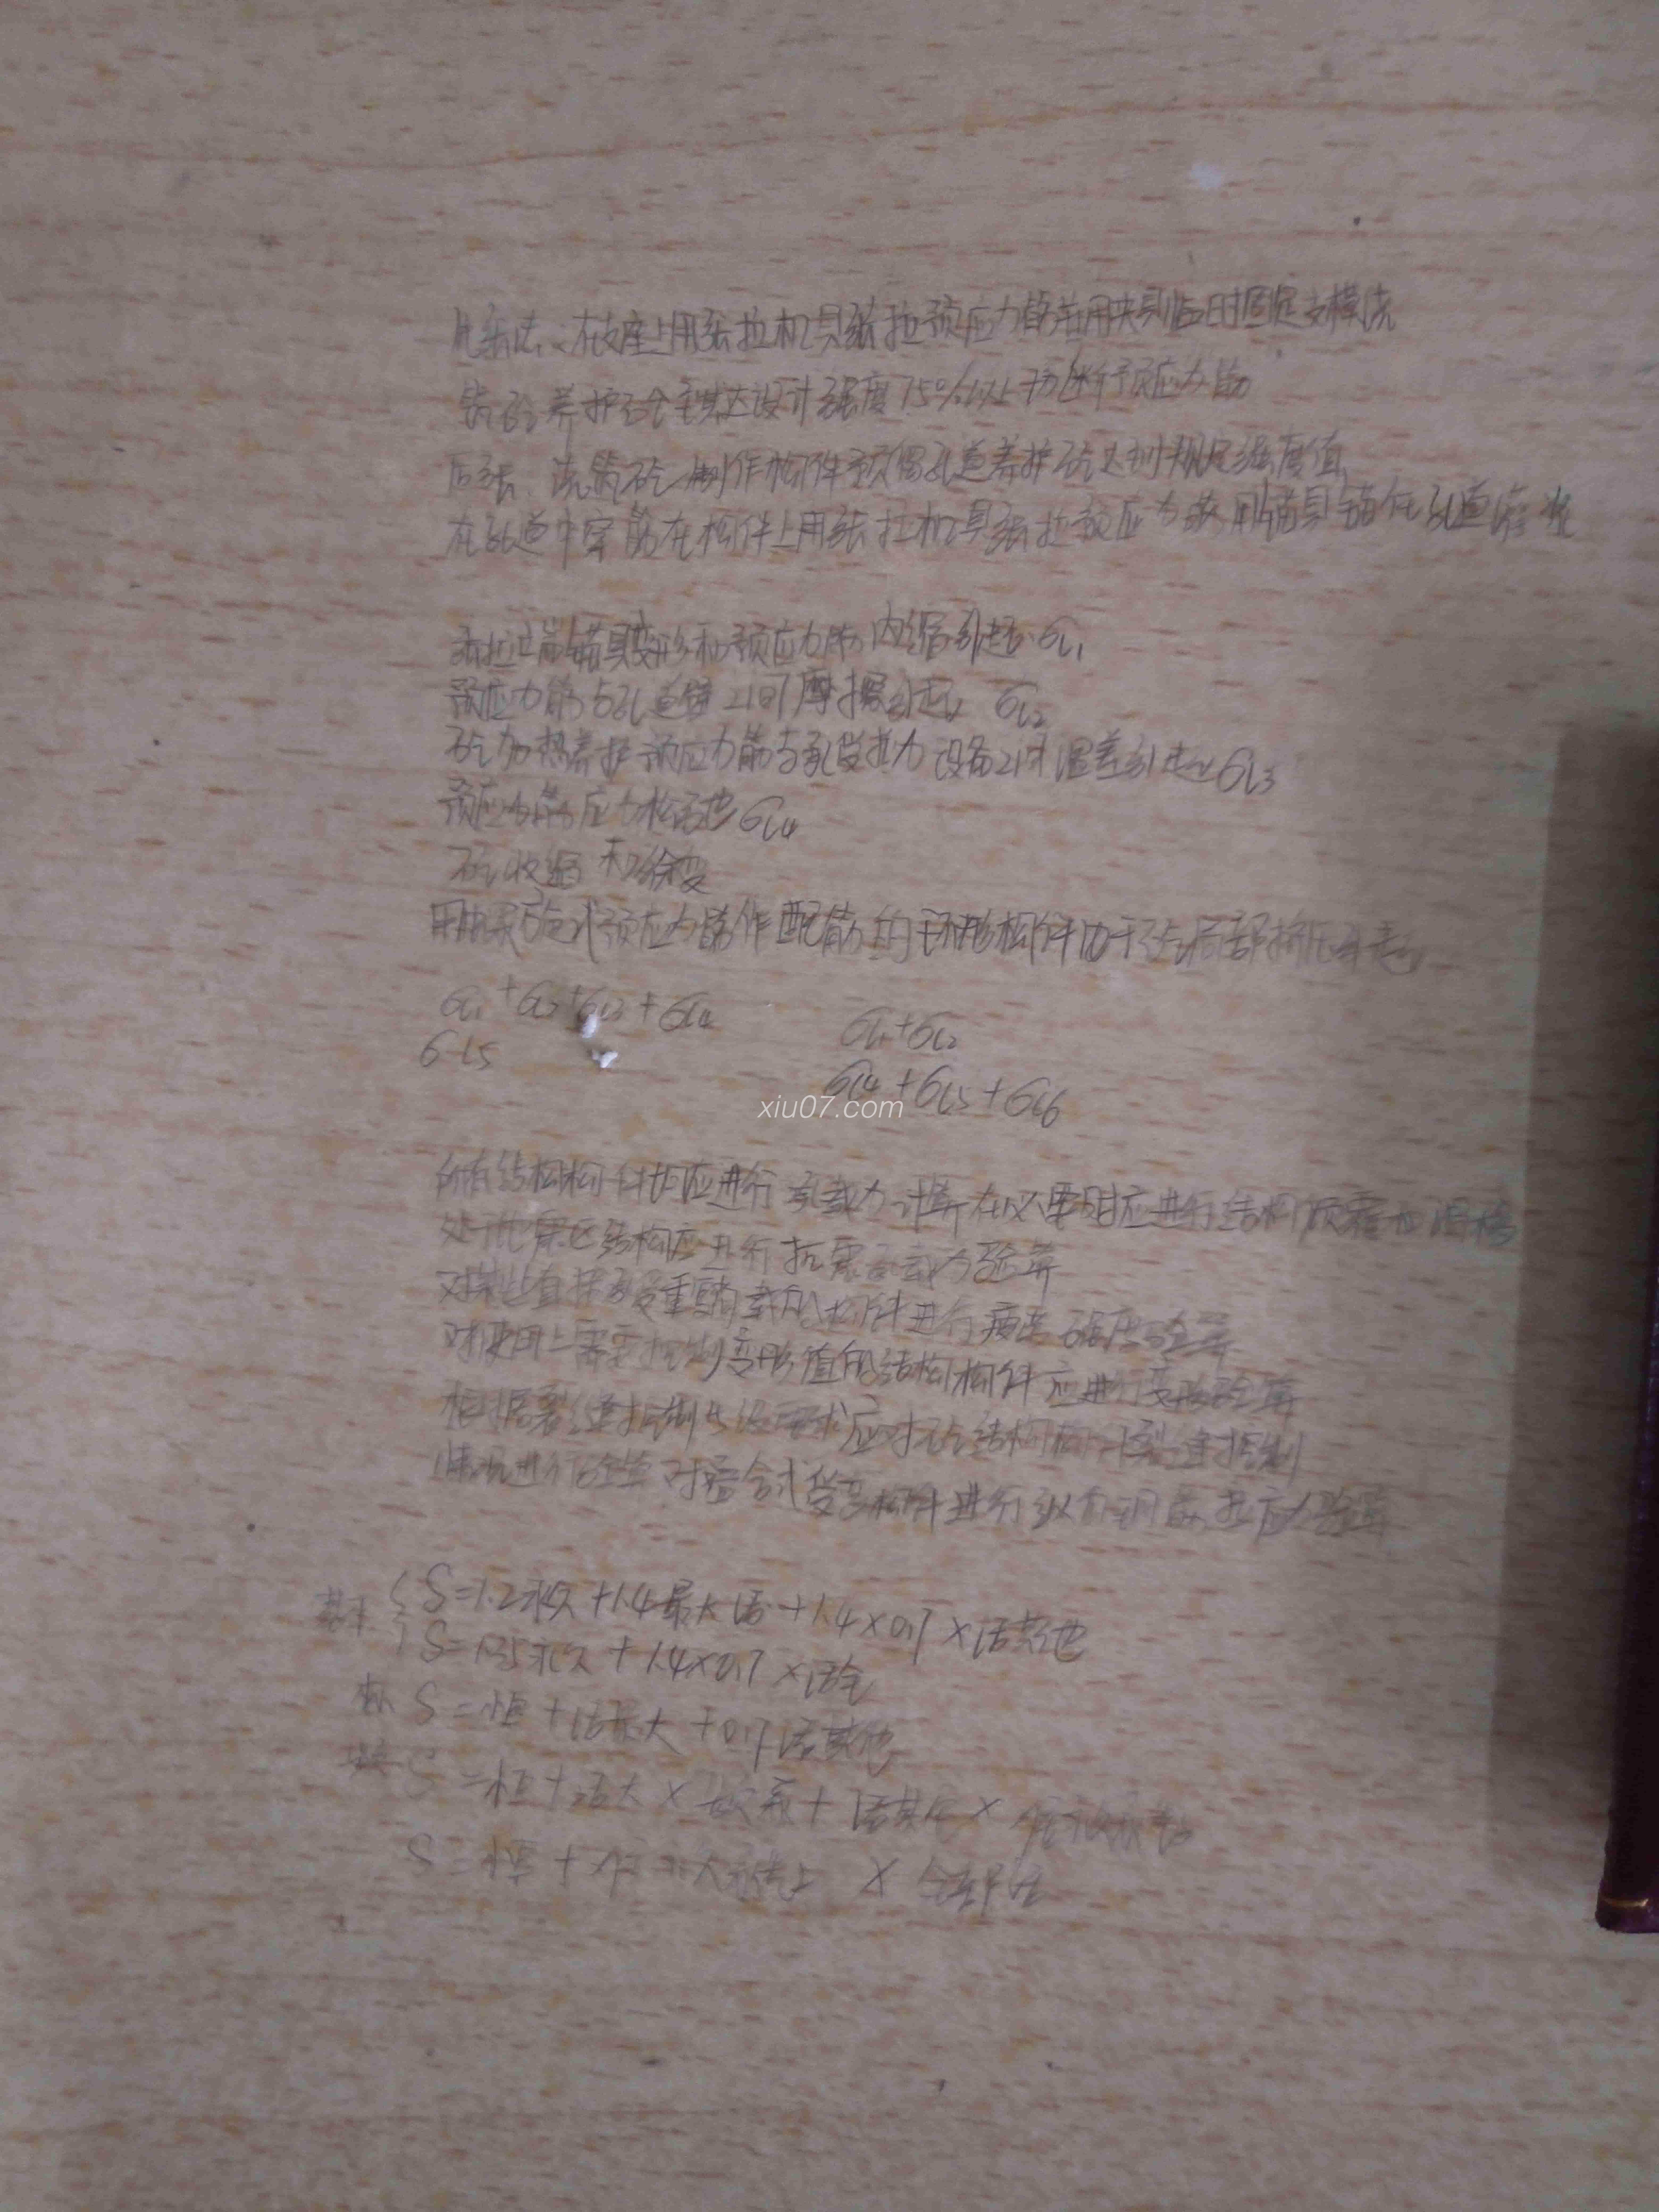 先张法：在支座上用张拉机具张拉预应力筋并用夹具临时固定支模浇
筑砼养护砼至其达设计强度75%以上切断预应力筋
后张：浇筑砼制作构件预留孔道养护砼达到规定强度值
在孔道中穿筋在构件上用张拉机具张拉预应力筋用锚具锚住孔道灌浆
张拉端锚具变形和预应力筋内缩引起σl1
预应力筋与孔道壁之间摩擦引起 σl2
砼加热养护预应力筋与承受拉力设备之间温差引起σl3
预应力筋应力松弛σl4
砼收缩和徐变
用螺旋式预应力筋作配筋的环形构件由于砼局部挤压引起
σl1+σl2+σl3+σl4
σl1+σl2
σl5
σl4+σl5+σl6
xiu07.com
所有结构构件均应进行承载力计算在必要时应进行结构倾覆和滑移
处于地震区结构应进行抗震承载力验算
对某些直接承受重 荷载的构件进行疲劳强度验算
对使用上需要控制变形值的结构构件应进行变形验算
根据裂缝控制 要求应对砼结构构件裂缝控制
情况进行验算对叠合式受弯构件进行纵向钢筋拉应力验算
基本 { S=1.2永久+1.4最大活+1.4×0.7×活其他
S=1.35永久+1.4×0.7×活全
标 S=恒+活最大+0.7活其他
S=恒+活大× +活其他×
S=恒+ × 全部活